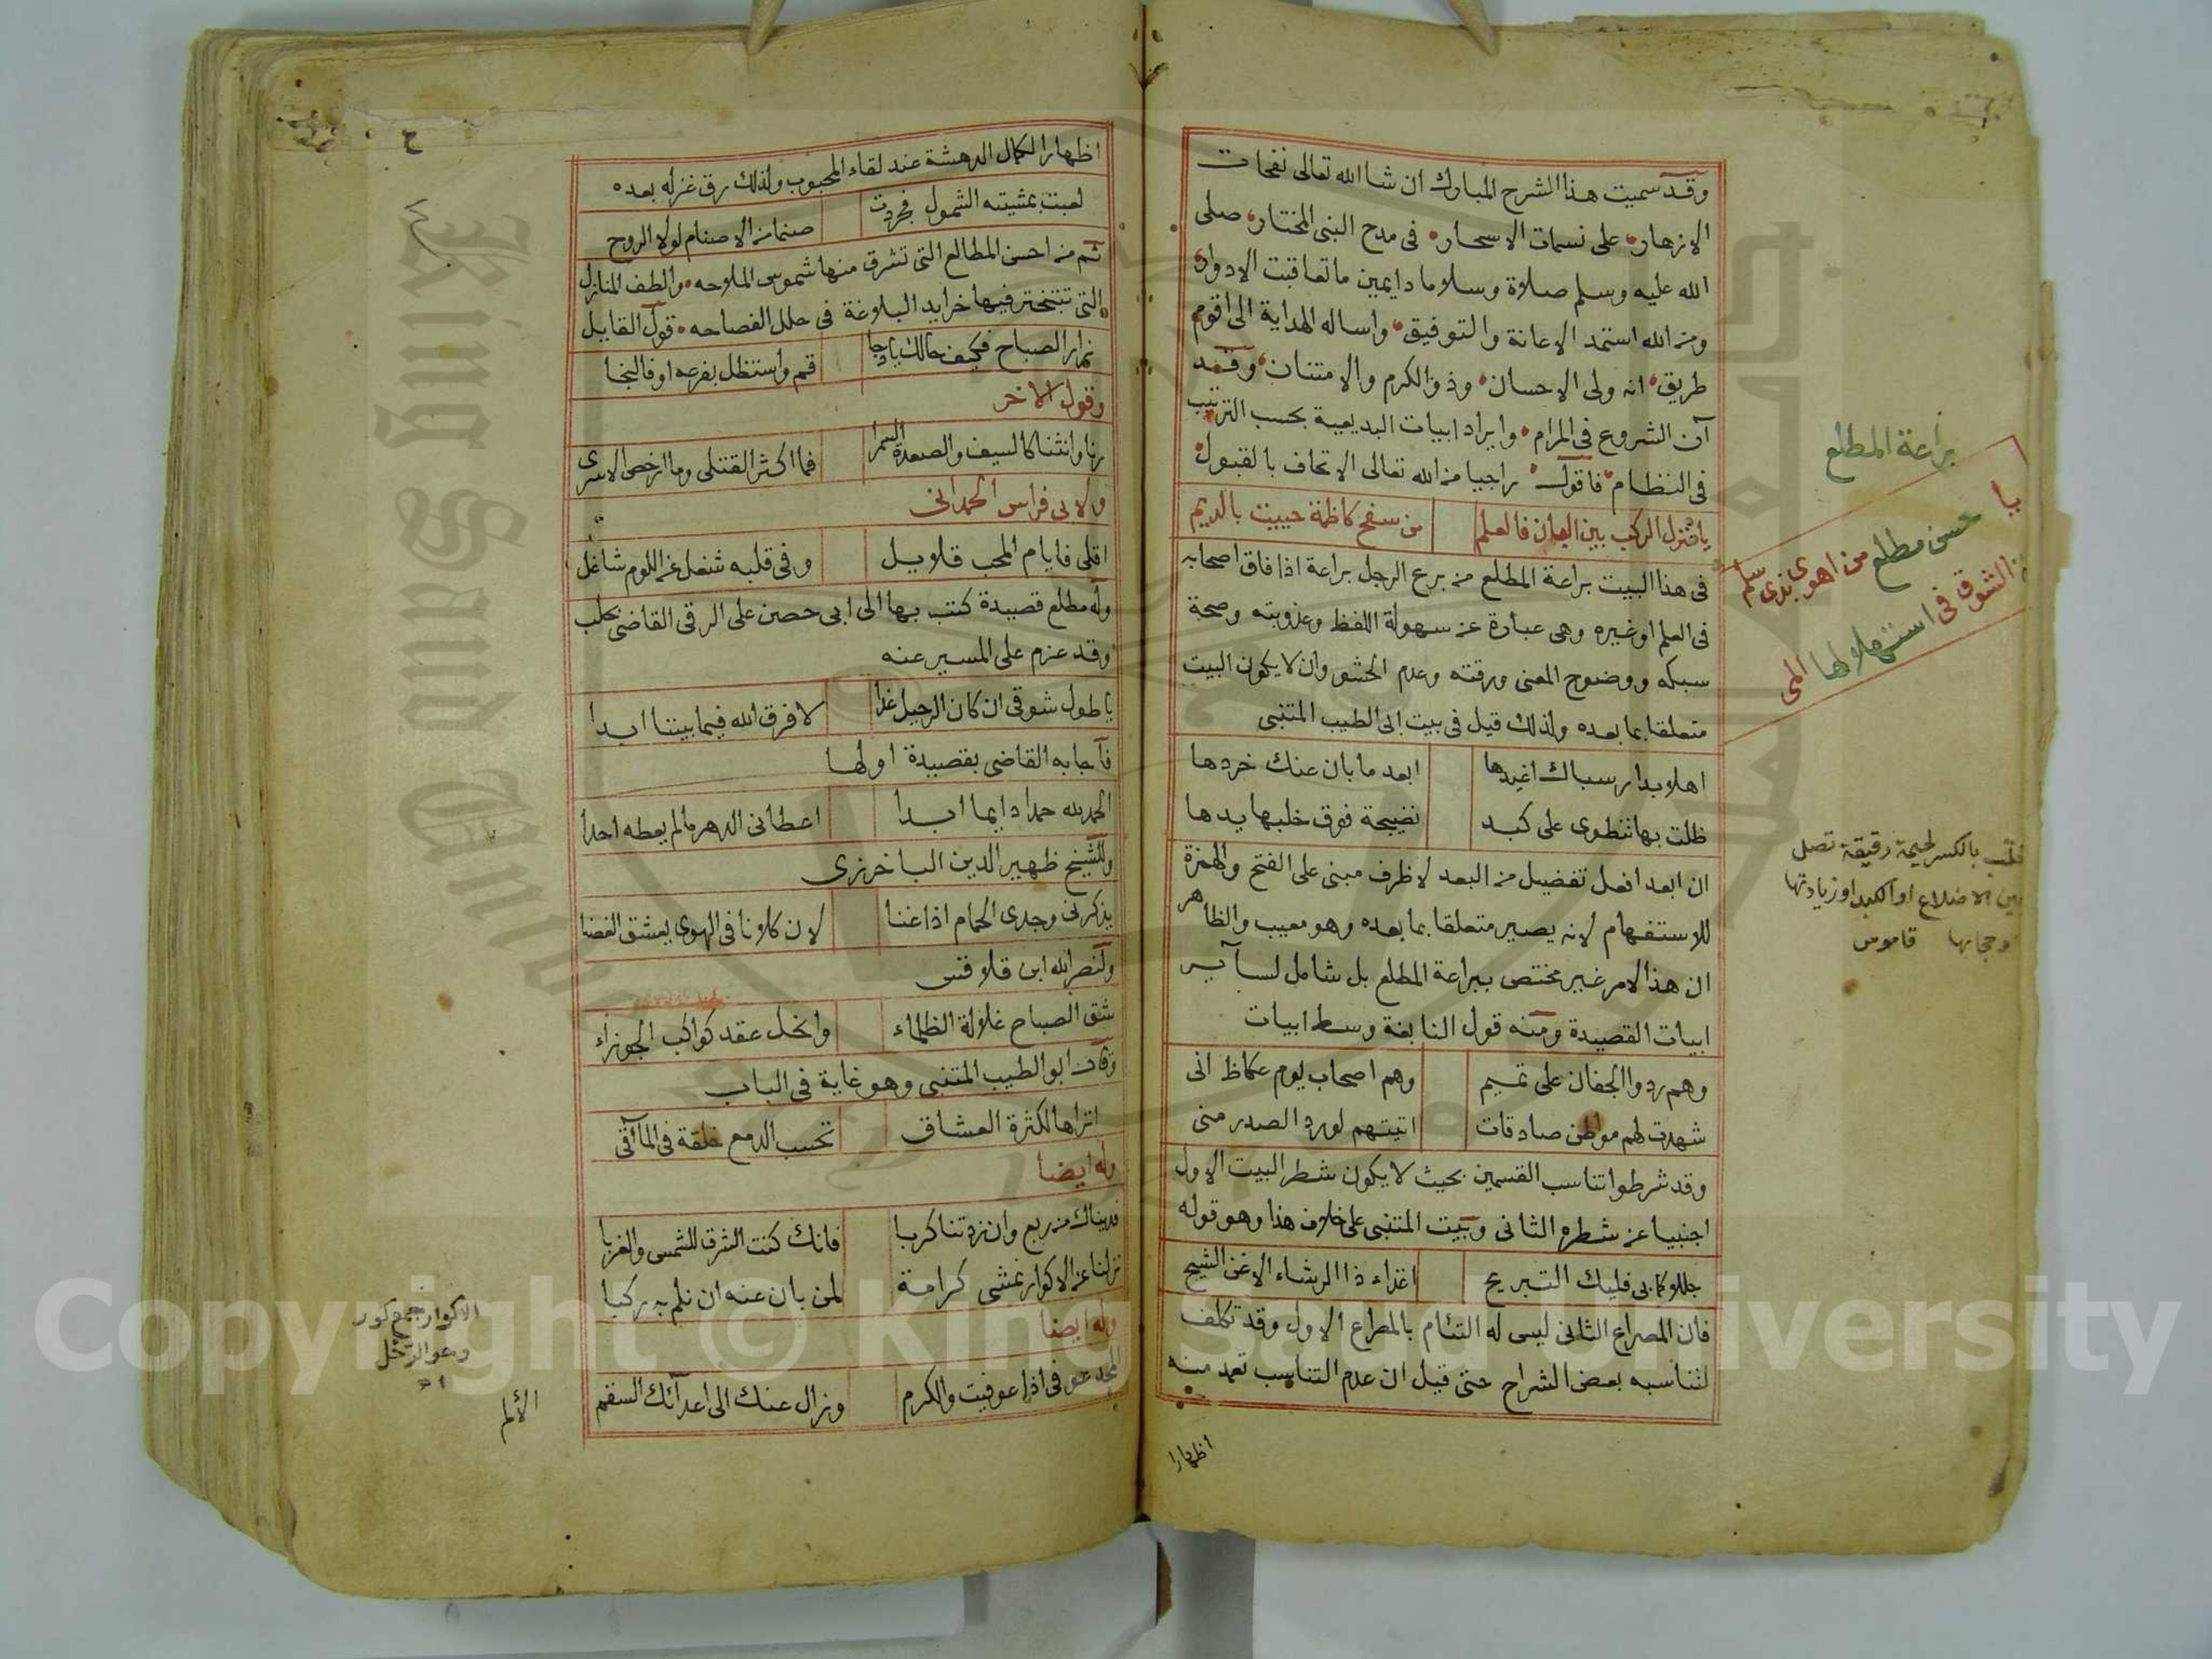 وقد سميت هذا الشرح المبارك ان شا الله تعالى نفحات
الازهار على نسمات الاسحار في مدح النبي المختار صلى
الله عليه وسلم صلاة وسلاما دايمين ما تعاقبت الادوار
ومن الله استمد الاعانة والتوفيق واساله الهداية الى اقوم
طريق انه ولى الاحسان وذو الكرم والامتنان وقد
آن الشروع في المرام وايراد ابيات البديعية بحسب الترتيب
في النظام فاقول راجيا من الله تعالى الاتحاف بالقبول
يا منزل الركب بين البان فالعلم من سفح كاظمة حييت بالديم
في هذا البيت براعة المطلع من برع الرجل براعة اذا فاق اصحابه
في العلم او غيره وهي عبارة عن سهولة اللفظ وعذوبته وصحة
سبكه ووضوح المعنى ورقته وعدم الحشو وان لا يكون البيت
متعلقا بما بعده ولذلك قيل في بيت ابى الطيب المتنبى
اهلا بدار سباك اغيدها ابعد ما بان عنك خردها
ظلت بها تنطوى على كبد نضيجة فوق خلبها يدها
ان ابعد افعل تفضيل من البعد لا ظرف مبنى على الفتح والهمزة
للاستفهام لانه يصير متعلقا بما بعده وهو معيب والظاهر
ان هذا الامر غير مختص ببراعة المطلع بل شامل لسآير
ابيات القصيدة ومنه قول النابغة وسط ابيات
وهم ردوا الجفان على تميم وهم اصحاب يوم عكاظ انى
شهدت لهم مواطن صادقات اتيتهم لورد الصدر منى
وقد شرطوا تناسب القسمين بحيث لا يكون شطر البيت الاول
اجنبيا عن شطره الثانى وبيت المتنبى على خلاف هذا وهو قوله
جللا كما بى فليك التبريح اغذاء ذا الرشاء الاغن الشيح
فان المصراع الثانى ليس له التئام بالمصراع الاول وقد تكلف
لتناسبه بعض الشراح حتى قيل ان عدم التناسب تعمد منه
اظهارا
براعة المطلع
يا حسن مطلع من اهوى بذى سلم
الشوق في استهلالها المى
خلب بالكسر لحيمة رقيقة تصل
بين الاضلاع او الكبد او زيادتها
او حجابها قاموس
اظهارا لكمال الدهشة عند لقاء المحبوب ولذلك رق غزله بعده
لعبت بمشيته الشمول فجردت صنما من الاصنام لولا الروح
ثم من احسن المطالع التى تشرق منها شموس الملاحه والطف المنازل
التى تتبختر فيها خرايد البلاغة في حلل الفصاحه قول القايل
زار الصباح فكيف حالك يا دجا قم واستظل بفرعه او فالنجا
وقول الاخر
رنا وانثنا كالسيف والصعدة السمرا فما اكثر القتلى وما ارخص الاسرى
ولابى فراس الحمدانى
اقلى فايام المحب قلايل وفي قلبه شغل عن اللوم شاغل
وله مطلع قصيدة كتب بها الى ابى حصن على الرقى القاضى بحلب
وقد عزم على المسير عنه
يا طول شوقى ان كان الرحيل غدا لا فرق الله فيما بيننا ابدا
فآجابه القاضى بقصيدة اولها
الحمد لله حمدا دايما ابدا اعطانى الدهر ما لم يعطه احدا
وللشيخ ظهير الدين الباخرزى
يذكرنى وجدى الحمام اذا غنا لان كلانا في الهوى يعشق الغصنا
ولنصر الله ابن قلاقس
شق الصباح غلالة الظلماء وانحل عقد كواكب الجوزاء
وقال ابو الطيب المتنبى وهو غاية في الباب
اتراها لكثرة العشاق تحسب الدمع خلقة في المآقى
وله ايضا
فديناك من ربع وان زدتنا كربا فانك كنت الشرق للشمس والغربا
نزلنا عن الاكوار نمشى كرامة لمن بان عنه ان نلم به ركبا
وله ايضا
المجد عوفى اذا عوفيت والكرم وزال عنك الى اعدآئك السقم
الاكوار جمع كور
وهو الرحل
الألم
Copyright © King Saud University
King Saud University